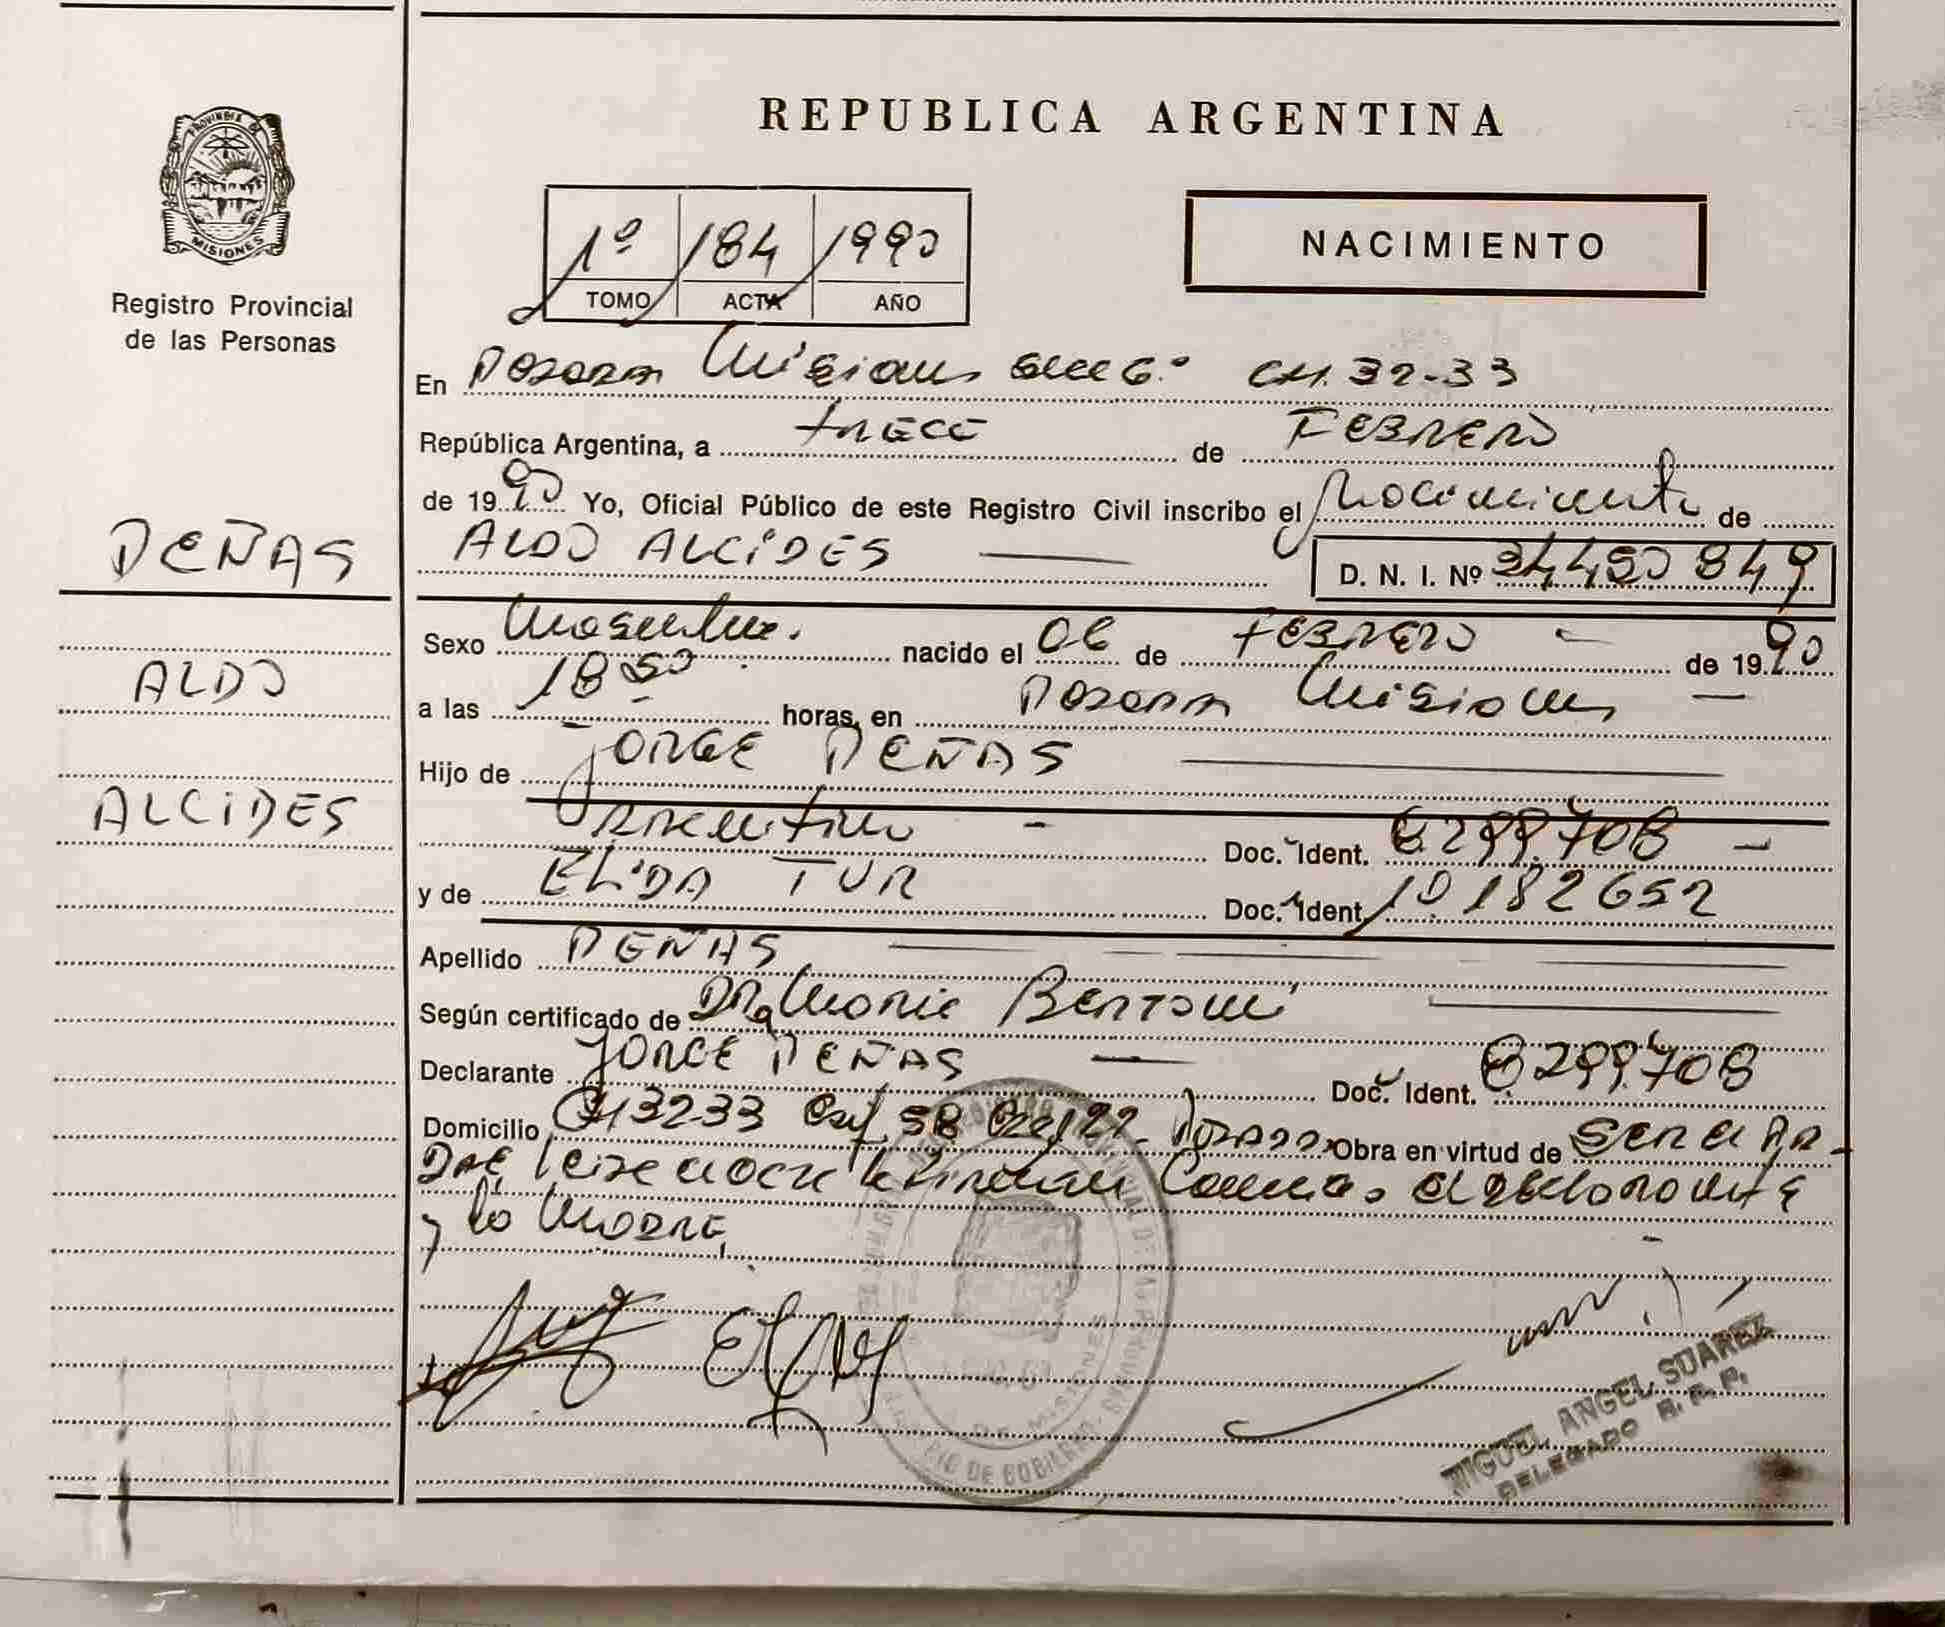 PROVINCIA DE
MISIONES
Registro Provincial
de las Personas
REPUBLICA ARGENTINA
1º 184 1990
TOMO ACTA AÑO
NACIMIENTO
En Posadas Misiones CH. 32-33
República Argentina, a trece de FEBRERO
de 1990 Yo, Oficial Público de este Registro Civil inscribo el Nacimiento de
PEÑAS
ALDO ALCIDES
D. N. I. Nº 34450849
Sexo Masculino. nacido el 06 de FEBRERO de 1990
ALDO
a las 18 50 horas, en Posadas Misiones
Hijo de JORGE PEÑAS
ALCIDES
Argentino Doc. Ident. 8.299.708
y de ELIDA TUR Doc. Ident. 10182652
Apellido PEÑAS
Según certificado de DRa Bertoni
Declarante JORGE PEÑAS Doc. Ident. 8299.708
Domicilio CH 32-33 58 Posadas Obra en virtud de SER el PA-
DRE firman el declarante
y la MADRE
MIGUEL ANGEL SUAREZ
DELEGADO R. P. P.